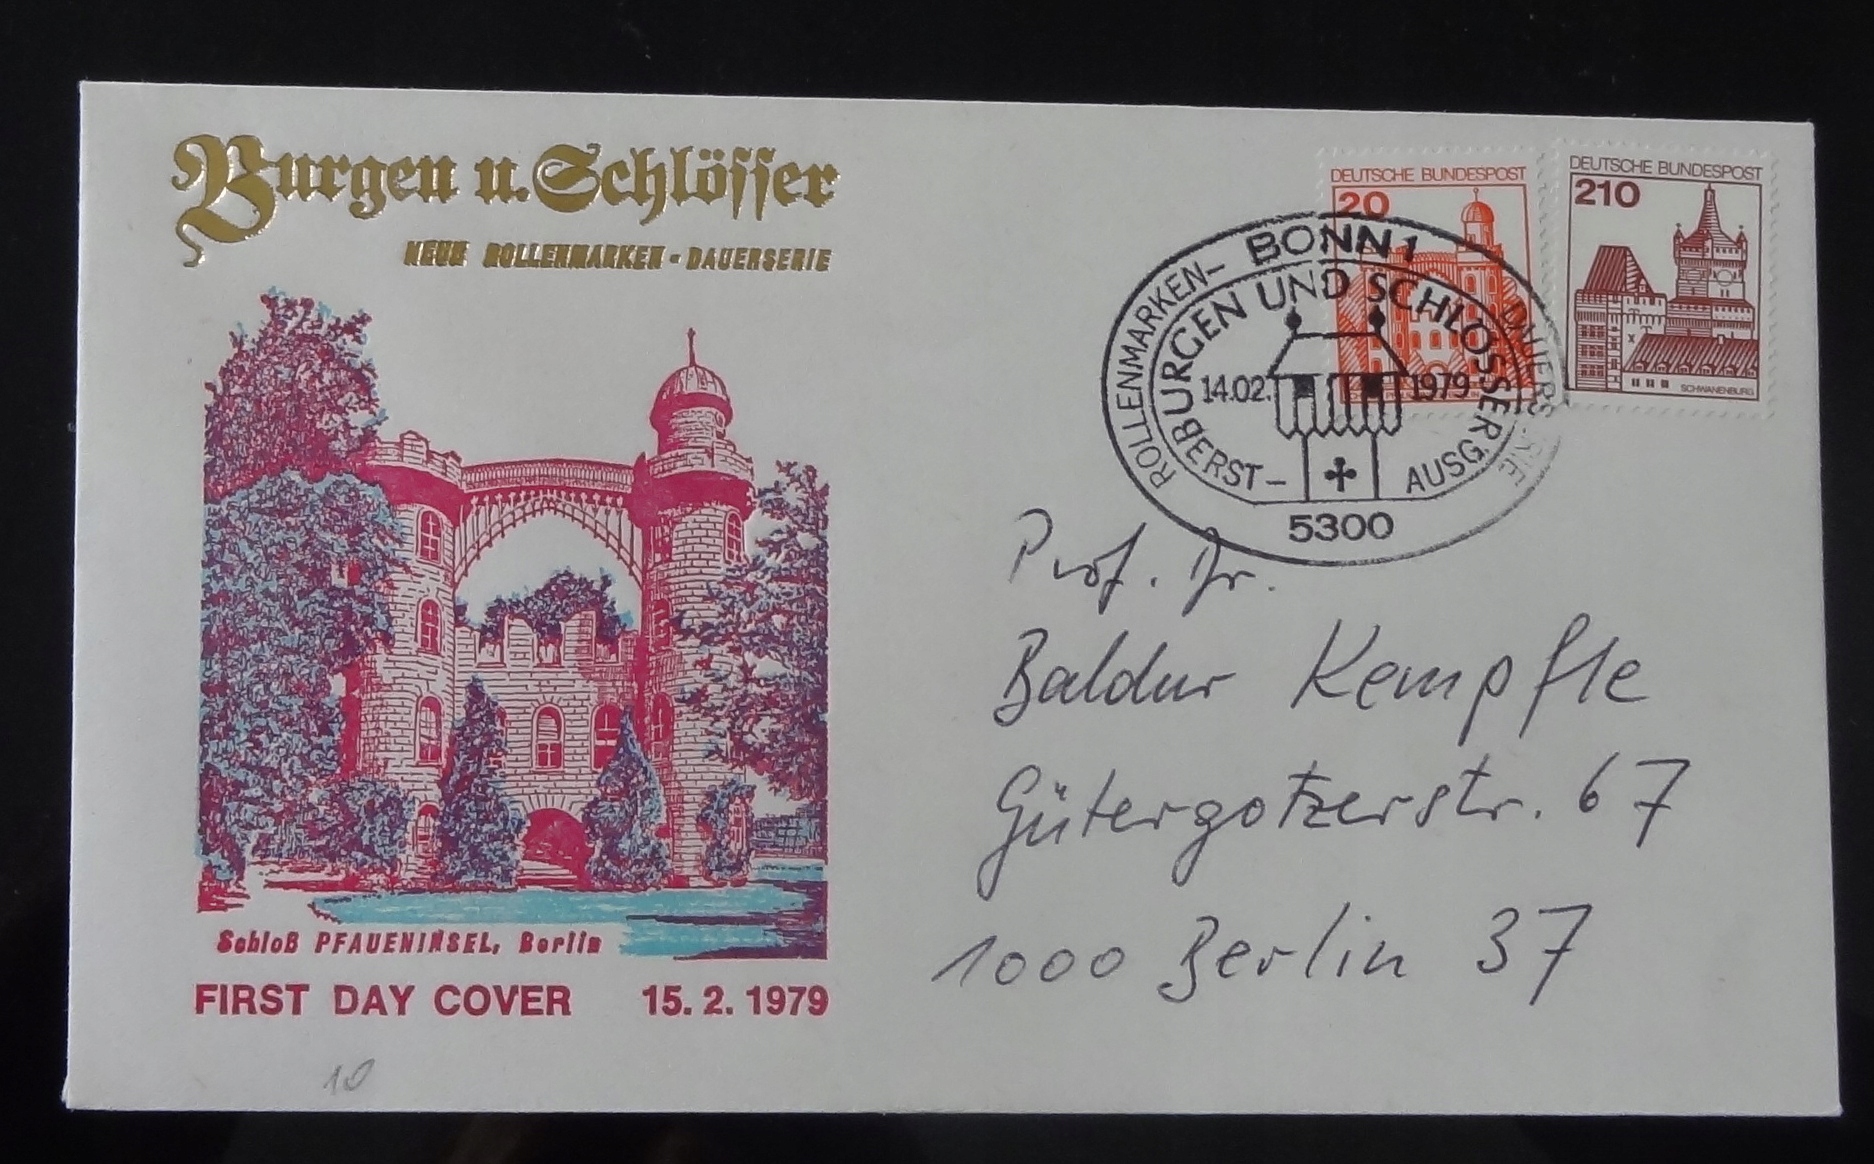 Burgen u. Schlösser
NEUE ROLLENMARKEN - DAUERSERIE
DEUTSCHE BUNDESPOST
20
DEUTSCHE BUNDESPOST
210
SCHWANENBURG
BONN 1
ROLLENMARKEN- DAUERSERIE
BURGEN UND SCHLÖSSER
14.02. 1979
ERST- AUSG
5300
Prof. Dr.
Baldur Kempfle
Gütergotzerstr. 67
1000 Berlin 37
Schloß PFAUENINSEL, Berlin
FIRST DAY COVER 15. 2. 1979
10